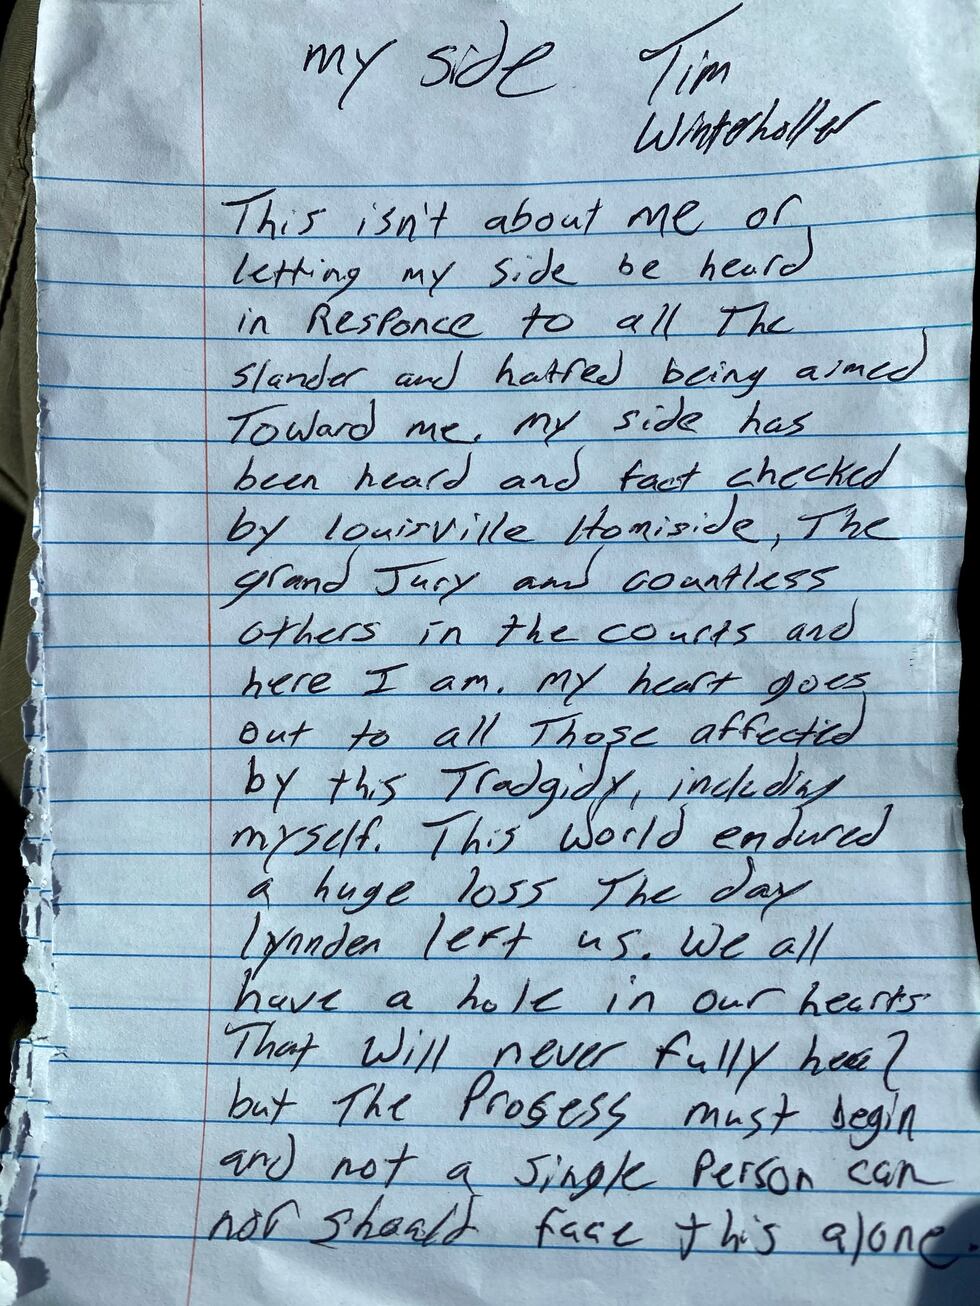 my side Tim
Winterholler
This isn't about me or
letting my side be heard
in Responce to all The
slander and hatred being aimed
Toward me. my side has
been heard and fact checked
by Louisville Homiside, The
grand Jury and countless
others in the courts and
here I am. my heart goes
out to all Those affected
by this Tradgidy, including
myself. This world endured
a huge loss The day
lynnden left us. We all
have a hole in our hearts
That will never fully heal
but The Progess must begin
and not a single Person can
nor should face this alone.